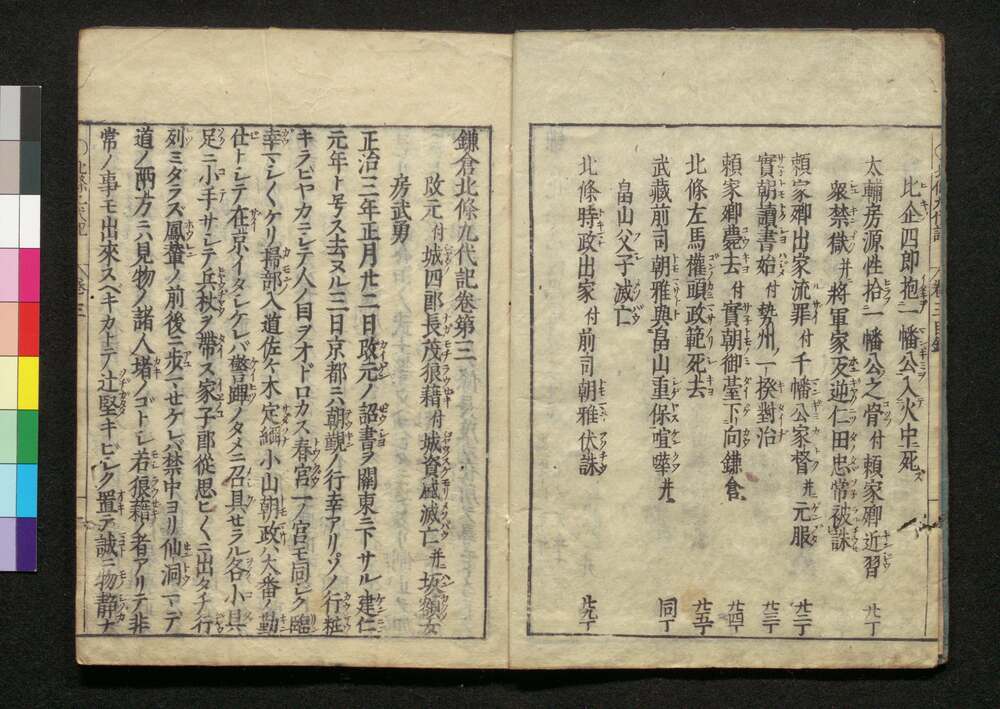 比企四郎抱一幡公入火中死
太輔房源性拾一幡公之骨付頼家卿近習
衆禁獄并將軍家反逆仁田忠常被誅 廿丁
頼家卿出家流罪付千幡公家督并元服 廿二丁
實朝讀書始付勢州一揆對治 廿三丁
頼家卿薨去付實朝御臺下向鎌倉 廿四丁
北條左馬權頭政範死去 廿五丁
武藏前司朝雅與畠山重保喧嘩并 同丁
畠山父子滅亡
北條時政出家付前司朝雅伏誅 廿九丁
鎌倉北條九代記卷第三
改元付城四郎長茂狼藉付城資盛滅亡并坂額女
房武勇
正治三年正月廿二日改元ノ詔書ヲ關東ニ下サル建仁
元年ト号ス去ヌル三日京都ニハ朝覲ノ行幸アリソノ行粧
キラビヤカニシテ人ノ目ヲオドロカス春宮一ノ宮モ同シク臨
幸マシ〱ケリ掃部入道佐々木定綱小山朝政ハ大番ノ勤
仕トシテ在京イタシケレバ警蹕ノタメニ召具セラル各小具
足ニ小手サシテ兵杖ヲ帶ス家子郎從思ヒ〱ニ出タチ行
列ミダラズ鳳輦ノ前後ニ歩マセケレバ禁中ヨリ仙洞マデ
道ノ兩方ニ見物ノ諸人堵ノゴトシ若狼藉ノ者アリテ非
常ノ事モ出來スヘキカトテ辻堅キビシク置テ誠ニ物静ナ